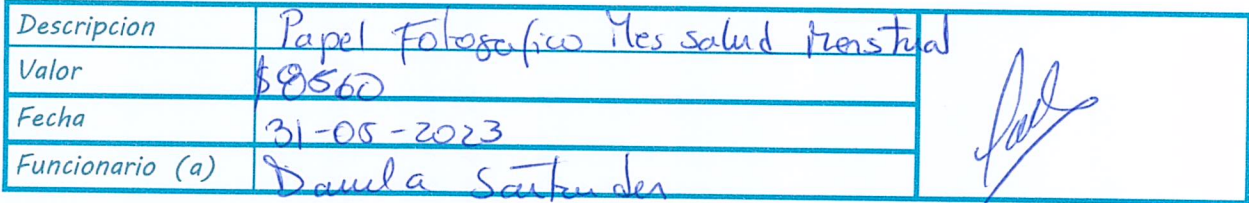 Descripcion Papel Fotografico Mes salud Menstrual
Valor $8560
Fecha 31-05-2023
Funcionario (a) Daniela Santander